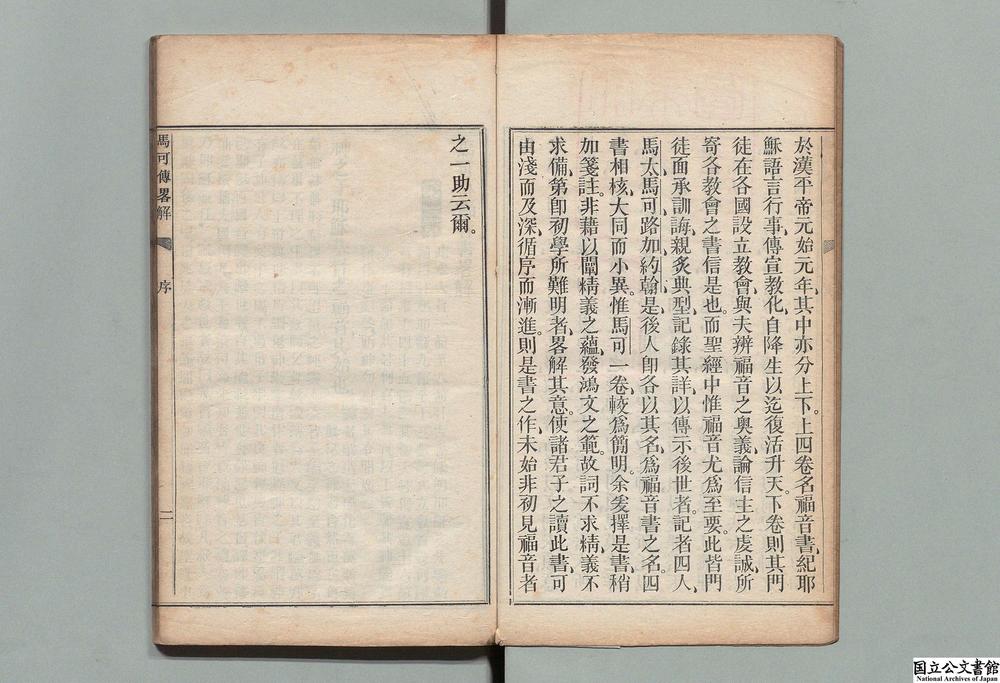 於漢平帝元始元年、其中亦分上下。上四卷名福音書、紀耶
穌語言行事、傳宣教化、自降生以迄復活升天。下卷則其門
徒在各國設立教會、與夫辨福音之奧義、論信主之虔誠、所
寄各教會之書信是也。而聖經中惟福音尤爲至要。此皆門
徒面承訓誨、親炙典型、記錄其詳、以傳示後世者。記者四人、
馬太、馬可、路加、約翰、是後人卽各以其名、爲福音書之名。四
書相核、大同而小異。惟馬可一卷、較爲簡明。余爰擇是書、稍
加箋註。非藉以闡精義之蘊、發鴻文之範。故詞不求精、義不
求備、第卽初學所難明者、畧解其意。使諸君子之讀此書、可
由淺而及深、循序而漸進。則是書之作、未始非初見福音者
之一助云爾。
馬可傳畧解 序 二
国立公文書館
National Archives of Japan